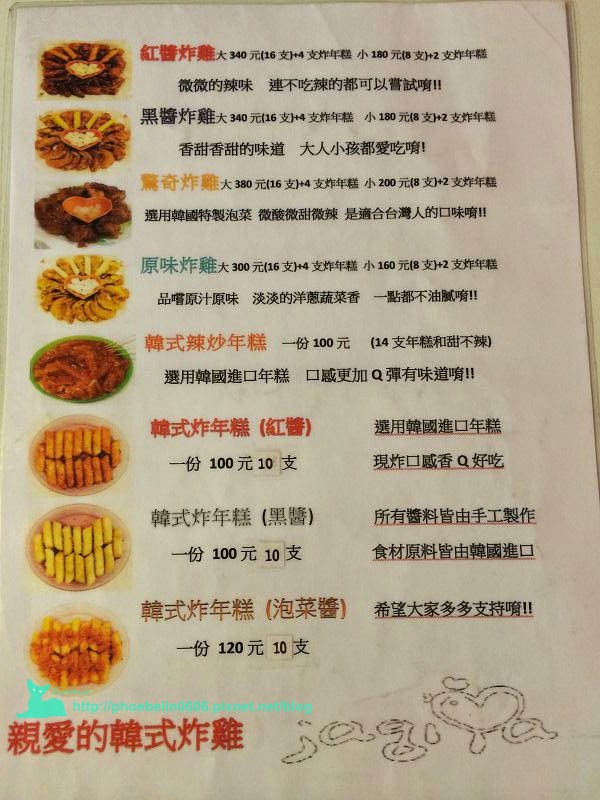 紅醬炸雞大 340 元(16 支)+4 支炸年糕 小 180 元(8 支)+2 支炸年糕
微微的辣味 連不吃辣的都可以嘗試唷!!
黑醬炸雞大 340 元(16 支)+4 支炸年糕 小 180 元(8 支)+2 支炸年糕
香甜香甜的味道 大人小孩都愛吃唷!
驚奇炸雞大 380 元(16 支)+4 支炸年糕 小 200 元(8 支)+2 支炸年糕
選用韓國特製泡菜 微酸微甜微辣 是適合台灣人的口味唷!!
原味炸雞大 300 元(16 支)+4 支炸年糕 小 160 元(8 支)+2 支炸年糕
品嚐原汁原味 淡淡的洋蔥蔬菜香 一點都不油膩唷!!
韓式辣炒年糕 一份 100 元 (14 支年糕和甜不辣)
選用韓國進口年糕 口感更加 Q 彈有味道唷!!
韓式炸年糕 (紅醬) 選用韓國進口年糕
一份 100 元 10 支 現炸口感香 Q 好吃
韓式炸年糕 (黑醬) 所有醬料皆由手工製作
一份 100 元 10 支 食材原料皆由韓國進口
韓式炸年糕 (泡菜醬) 希望大家多多支持唷!!
一份 120 元 10 支
http://phoebelin0606.pixnet.net/blog
親愛的韓式炸雞 jagiya